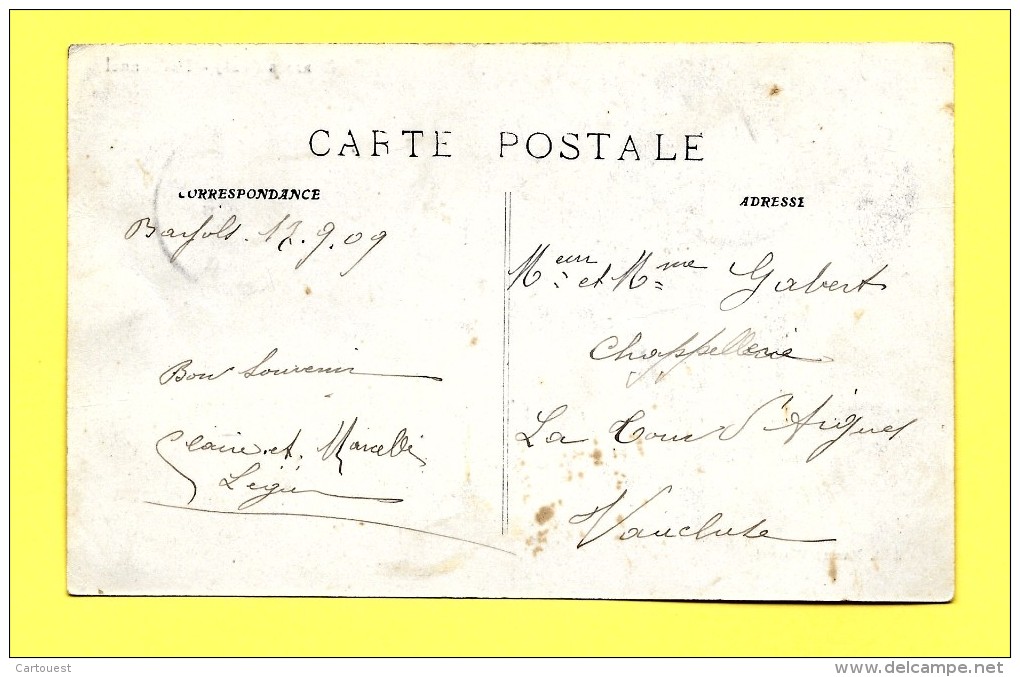 CARTE POSTALE
CORRESPONDANCE
ADRESSE
Barjols. 12.9.09
Meur et Mme Gabert
Chappellerie
La Tour d'Aigues
Vaucluse
Bon Souvenir
Claire et Marcelle
Légier
Cartouest
www.delcampe.net